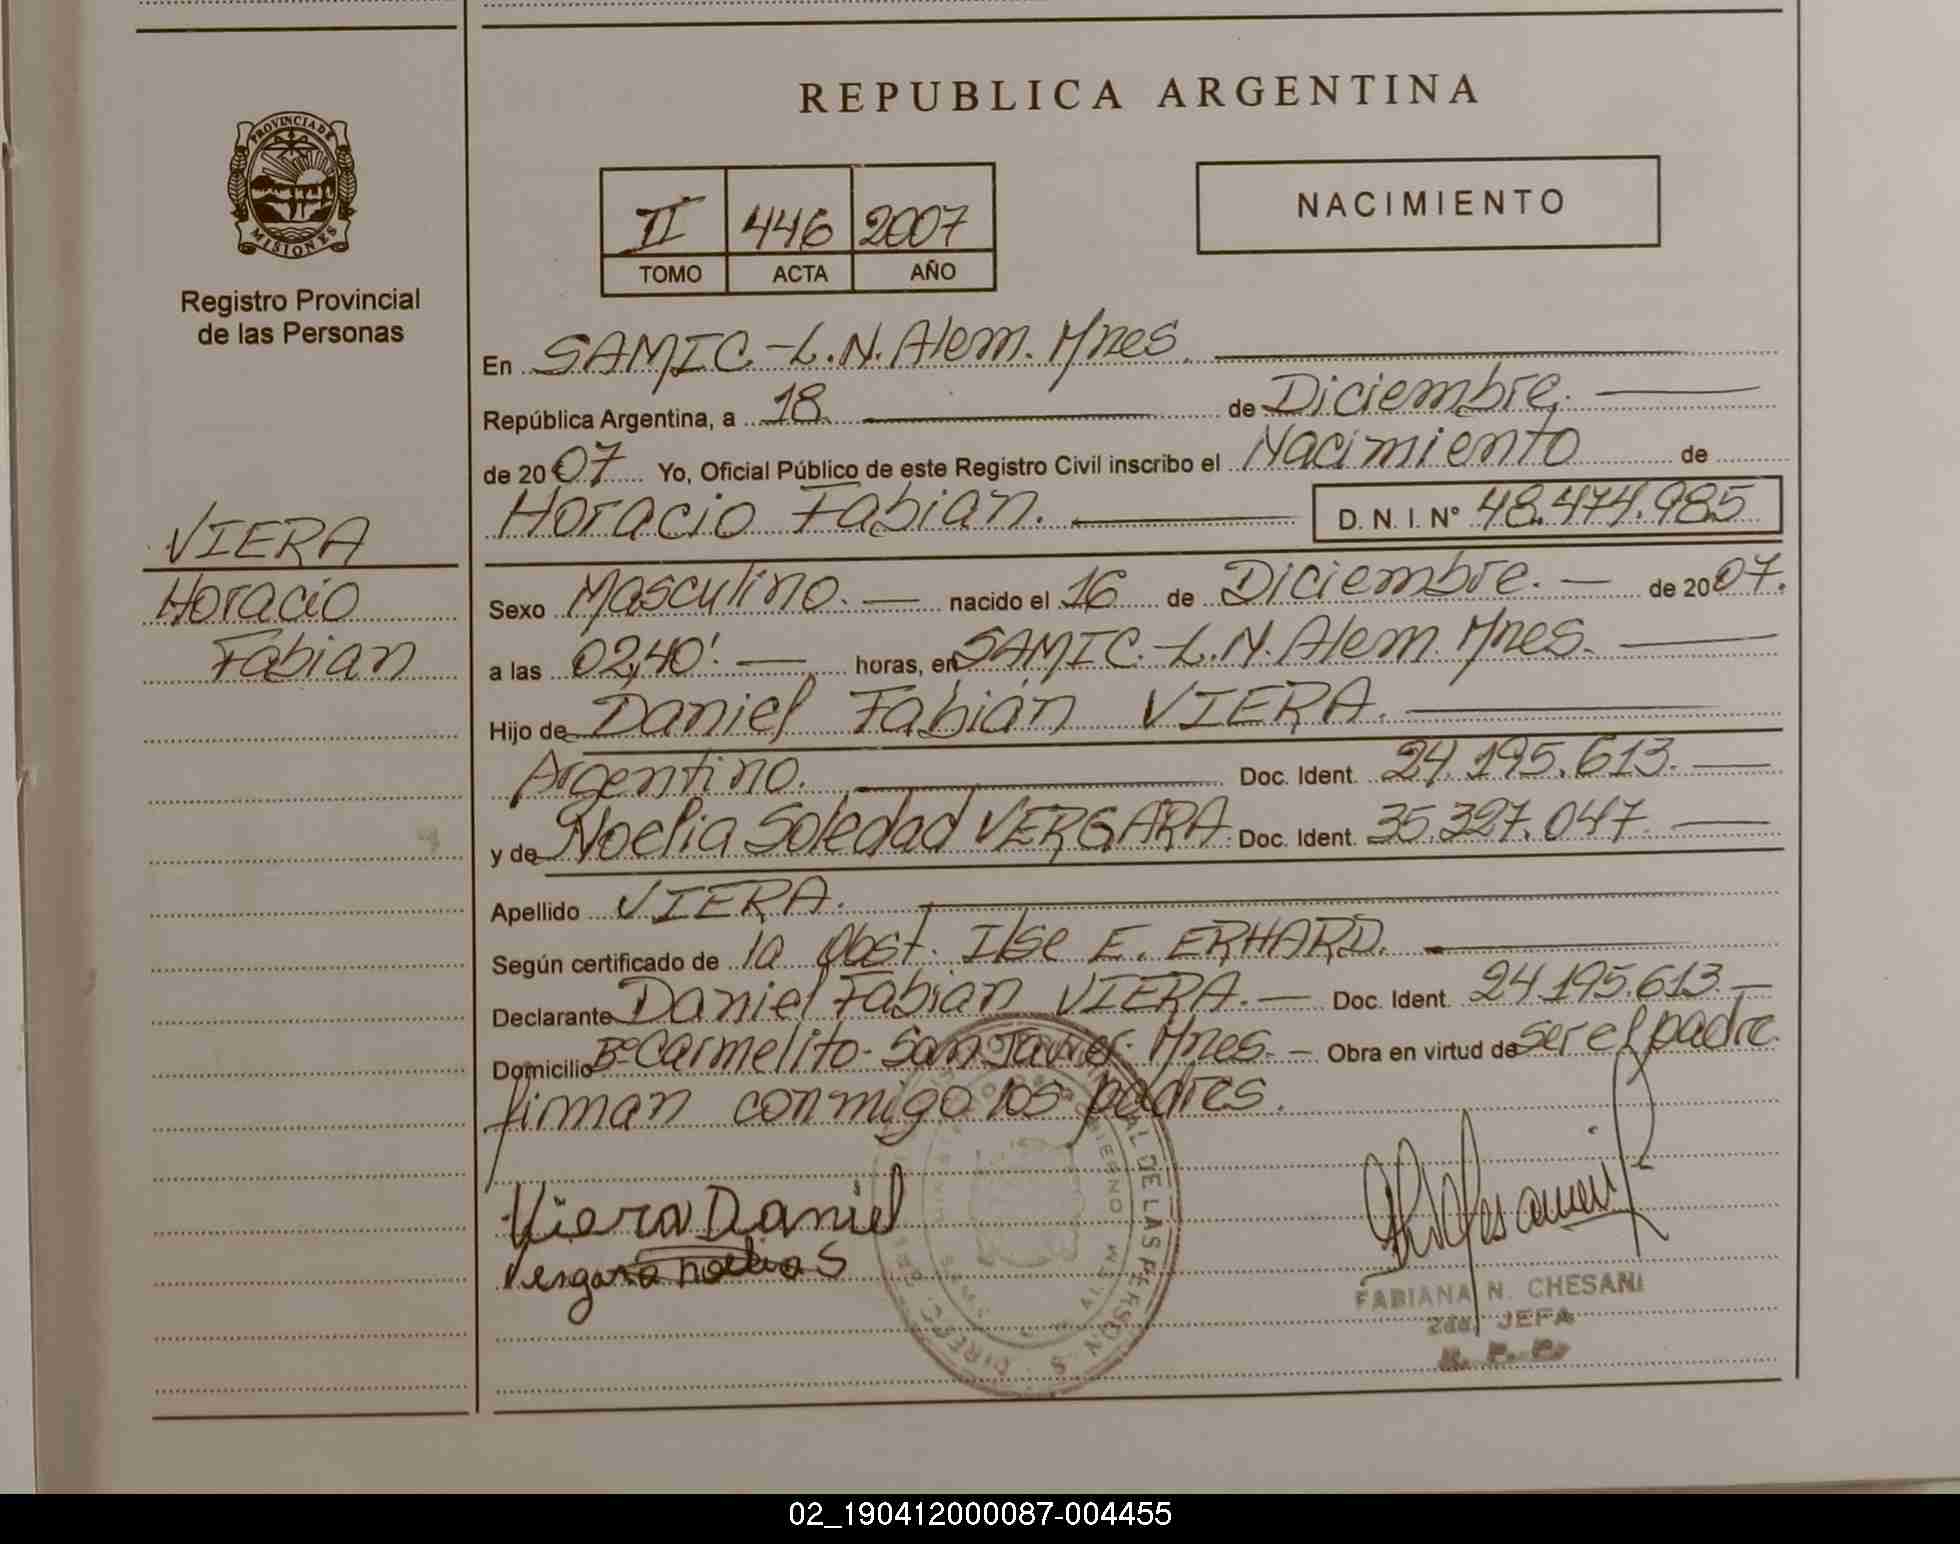 REPUBLICA ARGENTINA
PROVINCIA DE
MISIONES
Registro Provincial
de las Personas
II 446 2007
TOMO ACTA AÑO
NACIMIENTO
VIERA
Horacio
Fabian
En SAMIC-L.N. Alem. Mnes.
República Argentina, a 18 de Diciembre.
de 2007 Yo, Oficial Público de este Registro Civil inscribo el Nacimiento de
Horacio Fabian. D.N.I. Nº 48.474.985
Sexo Masculino. nacido el 16 de Diciembre. de 2007.
a las 02,40'. horas, en SAMIC.-L.N. Alem. Mnes.
Hijo de Daniel Fabián VIERA.
Argentino. Doc. Ident. 24.195.613.
y de Noelia Soledad VERGARA. Doc. Ident. 35.327.047.
Apellido VIERA.
Según certificado de la Obst. Ilse E. ERHARD.
Declarante Daniel Fabian VIERA. Doc. Ident. 24.195.613
Domicilio Bº Carmelito- San Javier. Mnes. Obra en virtud de ser el padre.
firman conmigo los padres.
Viera Daniel
Vergara noelia S
FABIANA N. CHESANI
2da. JEFA
R. P. P.
02_190412000087-004455